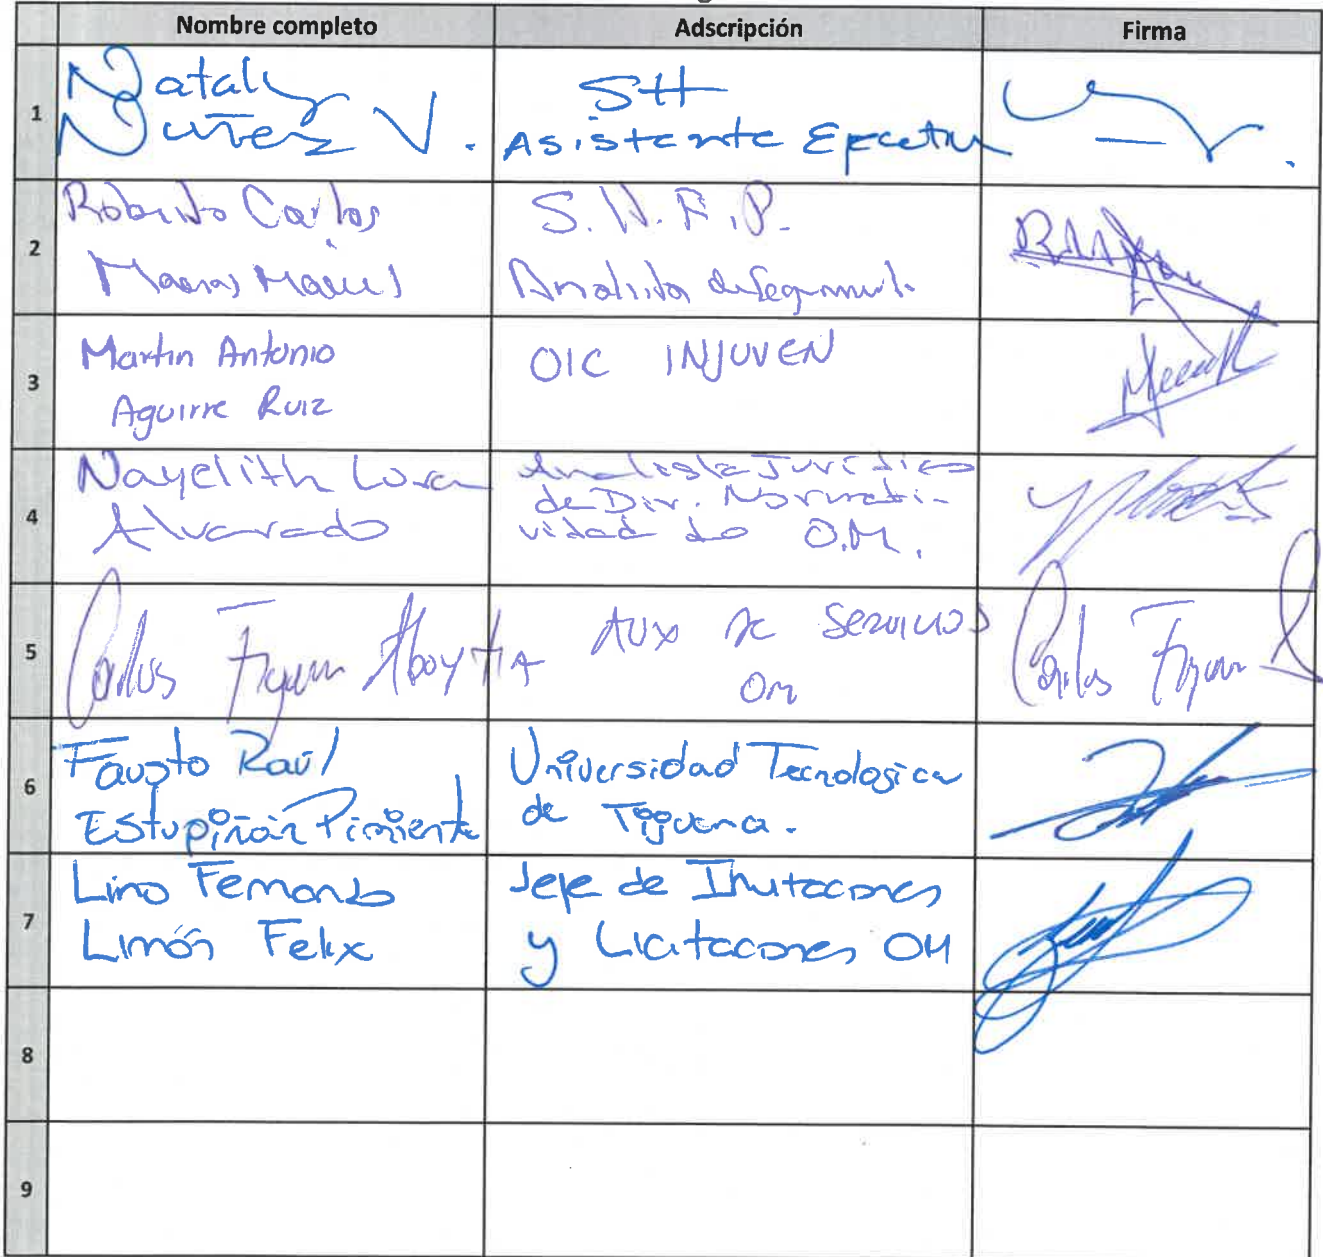 Nombre completo Adscripción Firma
1
Nataly
Nuñez V.
SH
Asistente
2
Roberto Carlos
S.N.F.P.
Analista de
3
Martin Antonio
Aguirre Ruiz
OIC INJUVEN
4
Nayelith
Alvarado
Analista Jurídico
de Dir. Normati-
vidad de O.M.
5
Carlos
Aux de Servicios
OM
Carlos
6
Fausto Raúl
Estupiñán Pimienta
Universidad Tecnologica
de Tijuana.
7
Lino Fernando
Limón Felix
Jefe de
y Licitaciones OM
8
9